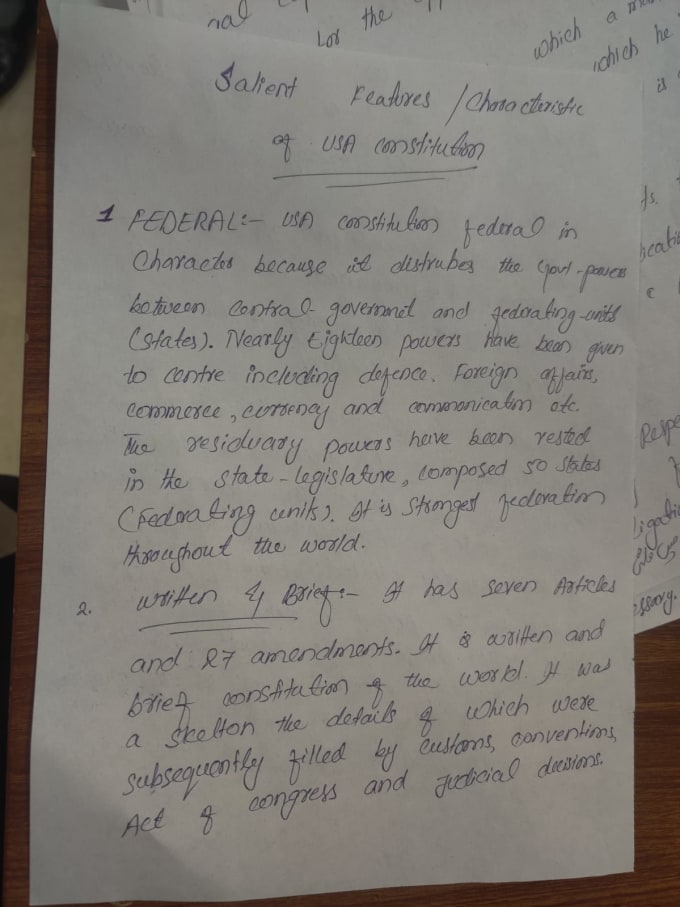 nal
Los the
which a
which he
is
Salient Features / Characteristic
of USA constitution
1 FEDERAL:- USA constitution federal in
Character because it distrubes the Govt-powers
between central government and federating-units
(states). Nearly Eighteen powers have been given
to centre including defence. Foreign affairs,
commerce, currency and communication etc.
The residuary powers have been vested
in the state-legislature, composed 50 States
(Federating units). It is strongest federation
throughout the world.
2. written & Brief:- It has seven Articles
and 27 amendments. It is written and
brief constitution of the world. It was
a skelton the details of which were
subsequently filled by customs, conventions,
Act of congress and Judicial decisions.